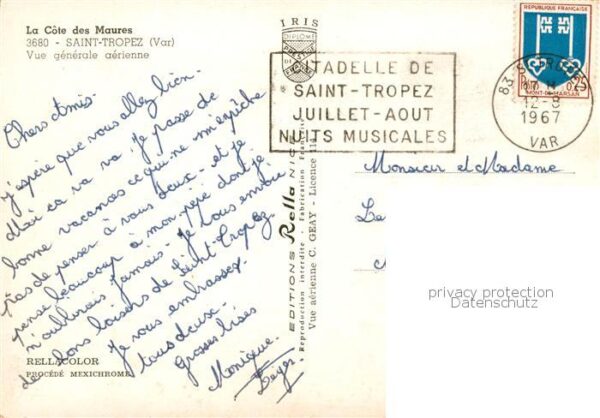 La Côte des Maures
3680 - SAINT-TROPEZ (Var)
Vue générale aérienne
IRIS
DIPLOME
PRESTIGE
RÉPUBLIQUE FRANÇAISE
0,25
MONT-DE-MARSAN
CITADELLE DE
SAINT-TROPEZ
JUILLET-AOUT
NUITS MUSICALES
83 ST-TROPEZ
12-8
1967
VAR
Chers amis.
J'espère que vous allez bien.
Moi ca va va. je passe de
bonne vacances ce qui ne m'empêche
pas de penser à vous deux. et je
pense beaucoup à mon pépé dont je
n'oublirais jamais. Je vous envoie
de bons baisers de Saint-Tropez
Je vous embrasses
tous deux.
Grosses bises
Monique.
Monsieur et Madame
Le
EDITIONS Rella NICE
Reproduction interdite - Fabrication Française
Vue aérienne C. GEAY - Licence 114
RELLACOLOR
PROCÉDÉ MEXICHROME
privacy protection
Datenschutz